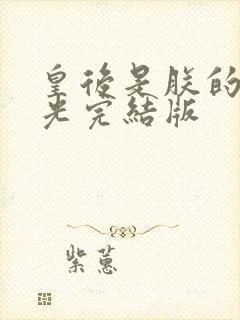 皇後是朕的
光完結版
紫蕙